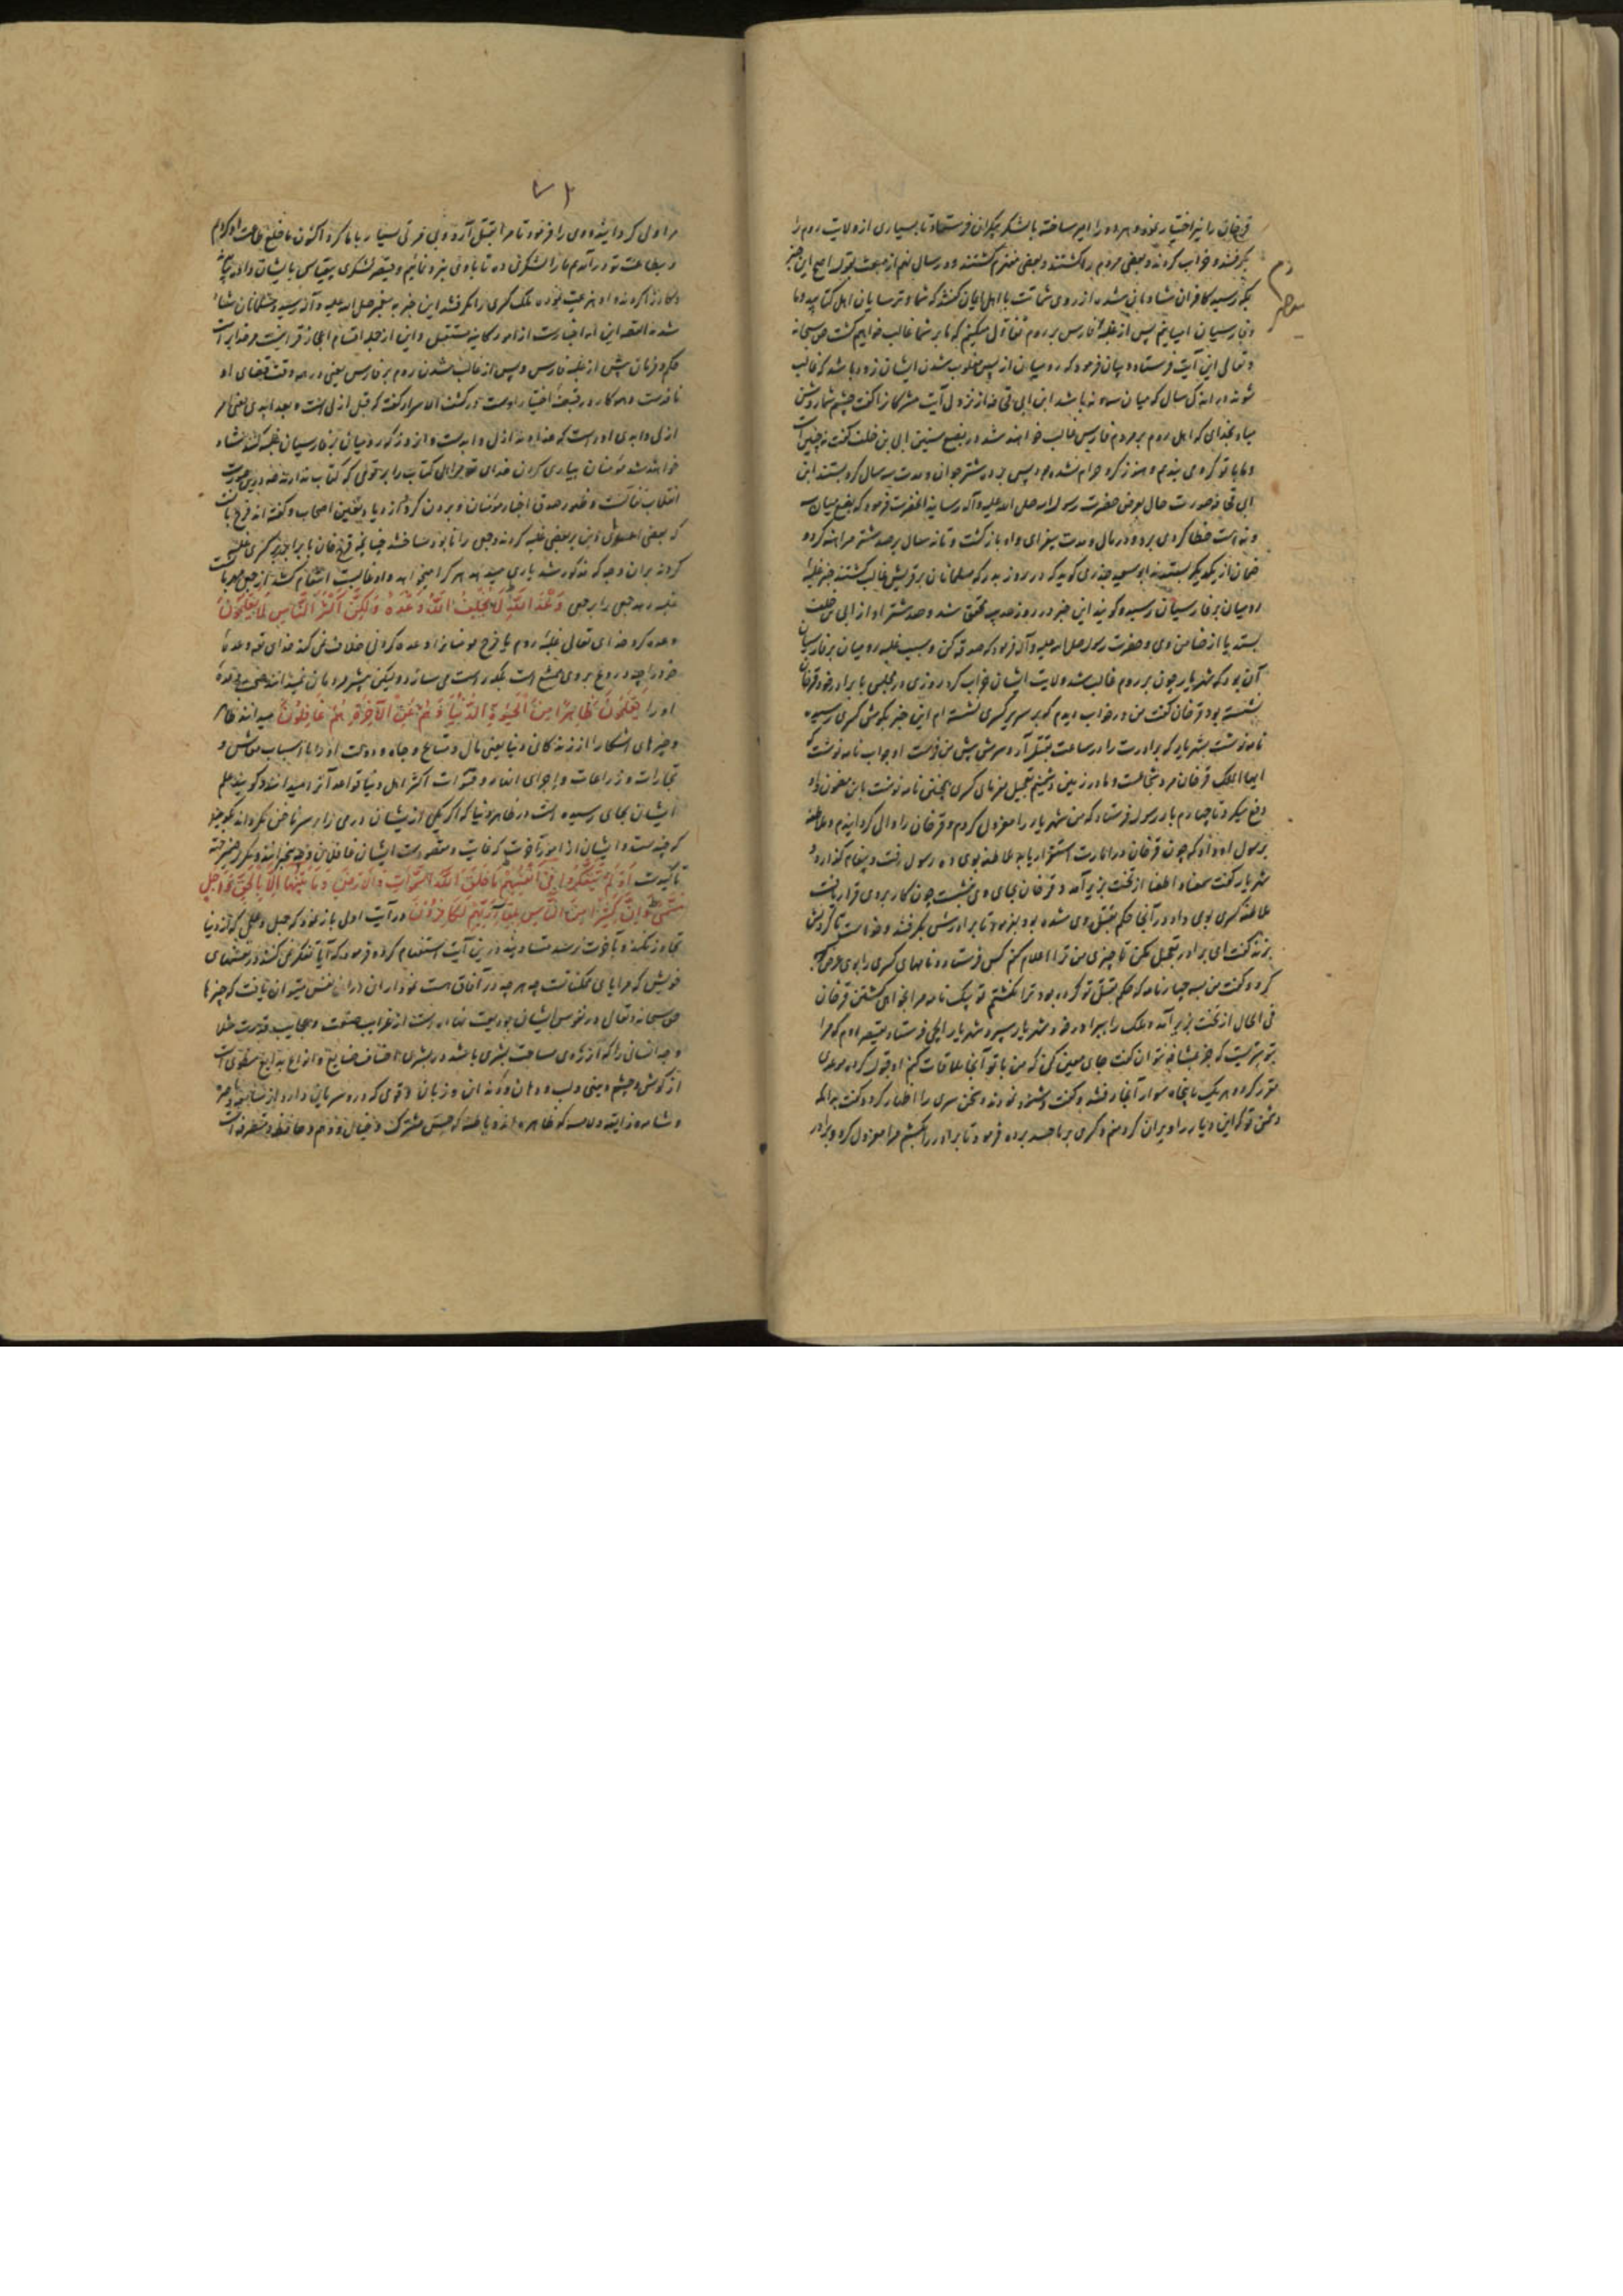 فرخان را نیز اختیار نموده هر دو را امیر ساخته با لشکر بیکران فرستاد تا بسیاری از ولایت روم را
بگرفتند و خراب کردند و بعضی مردم را کشتند و بعضی منهزم کشتند و در سال نهم از مبعث بقول اصح این خبر
بمکه رسید کافران شادمان شدند از روی شماتت با اهل ایمان کفتند که شما و ترسایان اهل کتابید و ما
و فارسیان امیانیم پس از غلبهٔ فارس بر روم تفاؤل میکنیم که ما بر شما غالب خواهیم کشت حق سبحانه
و تعالی این آیت فرستاد و بیان فرمود که رومیان از پس مغلوب شدن ایشان زود باشد که غالب
شوند در اندک سال که میان سه و نه باشد ابن ابی قحافه از نزول آیت مشرکانرا کفت چشم شما روشن
مباد بخدای که اهل روم بر مردم فارس غالب خواهند شد در بضع سنین ابی بن خلف کفت نه چنین است
و ما با تو کروی بندیم و هنوز کرو حرام نشده بود پس بر ده شتر جوان و مدت سه سال کرو بستند ابن
ابی قحافه صورت حال بعرض حضرت رسول الله صلی الله علیه و آله رسانید آنحضرت فرمود که بضع میان سه
و نه است خطا کردی برو و در مال و مدت بیفزای او باز کشت و تا نه سال بر صد شتر مراهنه کرد و
ضمان از یکدیکر بستدند ابو سعید خدری کوید که در روز بدر که مسلمانان بر قریش غالب کشتند خبر غلبهٔ
رومیان بر فارسیان رسید و کویند این خبر در روز حدیبیه محقق شد و صد شتر او از ابی بن خلف
بستد یا از ضامن وی و حضرت رسول صلی الله علیه و آله فرمود که صدقه کن و سبب غلبه رومیان بر فارسیان
آن بود که شهریار چون بر روم غالب شد و ولایت ایشان خراب کرد روزی در مجلسی با برادر خود فرخان
نشسته بود فرخان کفت من در خواب دیدم که بر سریر کسری نشسته ام این خبر بکوش کسری رسید
نامه نوشت بشهریار که برادرت را در ساعت بقتل آر و سرش پیش من فرست او جواب نامه نوشت که
ایها الملک فرخان مرد شجاعست و ما در زمین دشمنیم تعجیل مفرمای کسری بخشم نامه نوشت باین مضمون و او
دفع میکرد تا چهارم بار رسول فرستاد که من شهریار را معزول کردم و فرخان را والی کردانیدم و ملطفه
برسول او داد که چون فرخان در امارت استقرار یابد ملطفه بوی ده رسول رفت و پیغام کذارد و
شهریار کفت سمعا و اطعنا از تخت بزیر آمد و فرخان بجای وی نشست چون کار بر وی قرار یافت
ملطفه کسری بوی داد و در آنجا حکم بقتل وی شده بود بفرمود تا برادرش بکرفتند و خواست تا کردنش
بزند کفت ای برادر تعجیل مکن تا چیزی من ترا اعلام کنم کس فرستاد و نامهای کسری را بوی عرض
کرد و کفت من سه چهار نامه که حکم بقتل تو کرده بود ترا نکشتم تو بیک نامه مرا خواهی کشتن فرخان
فی الحال از تخت بزیر آمد و ملک را ببرادر خود شهریار سپرد و شهریار ایلچی فرستاد بقیصر روم که مرا
بتو سریست که جز بمشافهه نتوان کفت جای معین کن که من با تو آنجا ملاقات کنم او قبول کرد و موعدی
مقرر کرد و هر یک با پنجاه سوار آنجا رفتند و کفت و شنود نمودند و سخن سری را اظهار کرد و کفت بدانکه
دشمن تو که این دیار را ویران کرد منم و کسری بر ما حسد برده فرمود تا برادر را بکشم مرا معزول کرد و برادر
۷۲
مرا والی کردانید و وی را فرمود تا مرا بقتل آرد و بی مروتی بسیار با ما کرد اکنون ما خلع طاعت او کردیم
و بطاعت تو در آمدیم ما را لشکری ده تا با وی نبرد نمائیم و قیصر لشکری بیقیاس بایشان داد
شدند القصه این آیه اخبارست از امور کاینه مستقبل و این از جمله اقسام اعجاز قرآنیست مر خدایراست
حکم و فرمان پیش از غلبه فارس و پس از غالب شدن روم بر فارس یعنی در همه وقت قبضهٔ او
ازلی و ابدی اوراست که خداوند ازل و ابدست و آنروز که رومیان بر فارسیان غلبه کنند شاد
خواهند شد مؤمنان بیاری کردن خدای تعالی مر اهل کتاب را بر قومی که کتاب ندارند
انقلاب تفاؤلست و ظهور صدق اخبار مؤمنان
که بعضی
کردند بران وجه که مذکور شد یاری میدهد هر کرا میخواهد و او غالبست انتقام کشد
غلبه دهد جمعی را بر جمعی وَعْدَ اللّٰهِ لَا يُخْلِفُ اللّٰهُ وَعْدَهُ وَلٰكِنَّ اَكْثَرَ النَّاسِ لَا يَعْلَمُونَ
وعده کرد خدای تعالی غلبه روم یا فرح مؤمنانرا وعده کردنی خلاف نمی کند خدای تعالی وعدهٔ
خود را چه دروغ بر وی ممتنع است بلکه راست می سازد و لیکن بیشتر مردمان نمیدانند
او را يَعْلَمُونَ ظَاهِرًا مِنَ الْحَيٰوةِ الدُّنْيَا وَهُمْ عَنِ الْآخِرَةِ هُمْ غَافِلُونَ میدانند ظاهر
و چیزهای آشکارا از زندکانی دنیا یعنی مال و متاع و جاه و دولت
تجارات و زراعات و اجرای انهار و قنوات اکثر اهل دنیا قواعد آنرا میدانند و کویند علم
ایشان بجای رسیده است در ظاهر دنیا که اکر یکی از ایشان درمی را بر سر ناخن بکرداند بکوید
که چندست و ایشان از امور آخرت که غایت و مقصودست ایشان غافلان و بیخبرانند
تأکیدست اَوَلَمْ يَتَفَكَّرُوا فِي اَنْفُسِهِمْ مَا خَلَقَ اللّٰهُ السَّمٰوَاتِ وَالْاَرْضَ وَمَا بَيْنَهُمَا اِلَّا بِالْحَقِّ وَاَجَلٍ
مُسَمًّى وَاِنَّ كَثِيرًا مِنَ النَّاسِ بِلِقَاءِ رَبِّهِمْ لَكَافِرُونَ در آیت اول باز نمود که جهل
تجاوز نکند و بآخرت نرسند درین آیت استفهام کرده فرمود که آیا تفکر نمی کنند در نفسهای
خویش که مرایای ممکناتست چه هر چه در آفاق هست نمودار آن در نفس میتوان یافت که چیزها
حق سبحانه و تعالی در نفوس ایشان بودیعت نهاده است از غرایب صنعت و عجایب قدرت
از کوش و چشم و بینی و لب و دهان و دندان و زبان
و شامه و ذایقه و لامسه که ظاهره اند و باطنه که حس مشترک و خیال و وهم و حافظه و متصرفه است